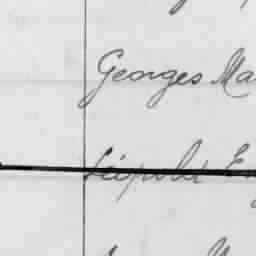 Georges Ma
Léopold E